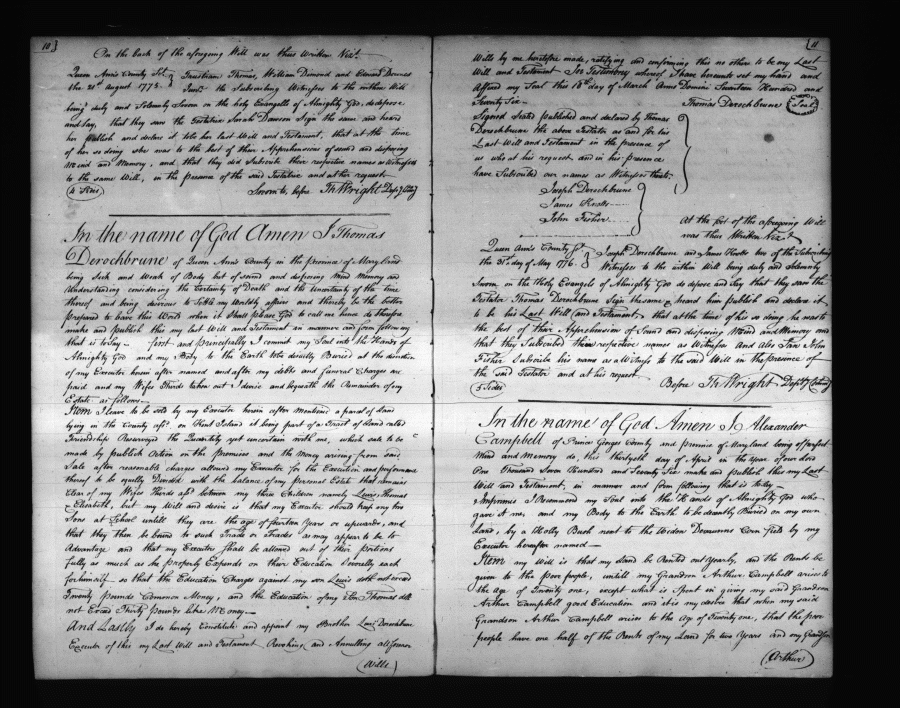 10
On the back of the aforegoing Will was thus Written Vizt.
Queen Ann's County Sct. } Faustian Thomas, William Dimond and Edward Downes
the 21st August 1775. the Subscribing Witnesses to the within Will
being duly and Solemnly Sworn on the holy Evangells of Almighty God, do depose
and say, that they saw the Testatrix Sarah Dawson Sign the same and heard
her publish and declare it to be her last Will and Testament, that at the time
of her so doing she was to the best of their Apprehensions of sound and disposing
Mind and Memory, and that they did Subscribe their respective names as Witnesses
to the same Will, in the presence of the said Testatrix and at her request
Sworn to, before Th Wright Depy
In the name of God Amen I Thomas
Derochbrune of Queen Ann's County in the province of Maryland
being Sick and Weak of Body but of sound and disposing Mind Memory and
Understanding considering the Certainty of Death and the Uncertainty of the time
thereof and being desirous to Settle my Worldly affairs and thereby be the better
prepared to leave this World when it Shall please God to call me hence do therefore
make and publish this my last Will and Testament in manner and form following
that is to say - first and principally I commit my Soul into the Hands of
Almighty God and my Body to the Earth to be decently Buried at the discretion
of my Executor herein after named and after my debts and funeral Charges are
paid and my Wifes Thirds taken out I devise and bequeath the Remainder of my
Estate as follows-
Item I leave to be sold by my Executor herein after mentioned a parcel of Land
lying in the County afd. on Kent Island it being part of a Tract of Land called
Friendship Resurveyed the Quantity yet uncertain with me, which is to be
made by publick Oction on the Premises and the Money arising from said
Sale after reasonable charges allowed my Executor for the Execution and performance
thereof to be equally Divided with the balance of my personal Estate that remains
Clear of my Wifes Thirds afd. between my three Children namely Lewis Thomas
Elizabeth, but my Will and desire is that my Executor should keep my two
Sons at School untill they are the age of fourteen Years or upwards, and
that they then be bound to such Trade or Trades as may appear to be to
Advantage and that my Executor shall be allowed out of their portions
fully as much as he properly Expends on their Education Severally each
for himself so that the Education Charges against my son Lewis doth not exceed
Twenty pounds Common Money, and the Education of my Son Thomas doth
not Exceed Thirty pounds like Money.
And Lastly I do hereby Constitute and appoint my Brother Lewis Derochbrune
Executor of this my Last Will and Testament Revoking and Annulling all former
(Wills)
11
Wills by me heretofore made, ratifying and confirming this no other to be my Last
Will and Testament In Testimony whereof I have hereunto set my hand and
Affixed my Seal this 18th day of March Anno Domini Seventeen Hundred and
Seventy Six - Thomas Derochbrune (Seal)
Signed Sealed published and declared by Thomas
Derochbrune the above Testator as and for his
Last Will and Testament in the presence of
us who at his request and in his presence
have Subscribed our names as Witnesses thereto.
Joseph Derochbrune
James Knotts
John Fisher
At the foot of the aforegoing Will
was thus Written Vizt.
Queen Ann's County Sct. } Joseph Derochbrune and James Knotts two of the Subscribing
the 31st day of May 1776. Witnesses to the within Will being duly and Solemnly
Sworn on the Holy Evangels of Almighty God do depose and Say that they saw the
Testator Thomas Derochbrune Sign the same & heard him publish and declare it
to be his Last Will and Testament, that at the time of his so doing he was to
the best of their Apprehension of Sound and disposing Mind and Memory and
that they Subscribed their respective names as Witnesses And also Saw John
Fisher Subscribe his name as a Witness to the said Will in the presence of
the said Testator and at his request
(3 Sides) Before Th Wright Depy
In the name of God Amen I Alexander
Campbell of Prince Georges County and province of Maryland being of perfect
Mind and Memory do, this thirtyeth day of April in the Year of our Lord
One Thousand Seven Hundred and Seventy Six make and publish this my Last
Will and Testament, in manner and form following that is to say -
Imprimis I Recommend my Soul into the Hands of Almighty God who
gave it me, and my Body to the Earth to be decently Buried on my own
Land, by a Holly Bush next to the Widow Corn field by my
Executor hereafter named -
Item my Will is that my Land be Rented out Yearly, and the Rents be
given to the poor people, untill my Grandson Arthur Campbell arives to
the Age of Twenty one, except what is Spent in giving my said Grandson
Arthur Campbell good Education and it is my desire that when my said
Grandson Arthur Campbell arives to the Age of Twenty one, that the poor
people have one half of the Rents of my Land for two Years and my Grandson
(Arthur)